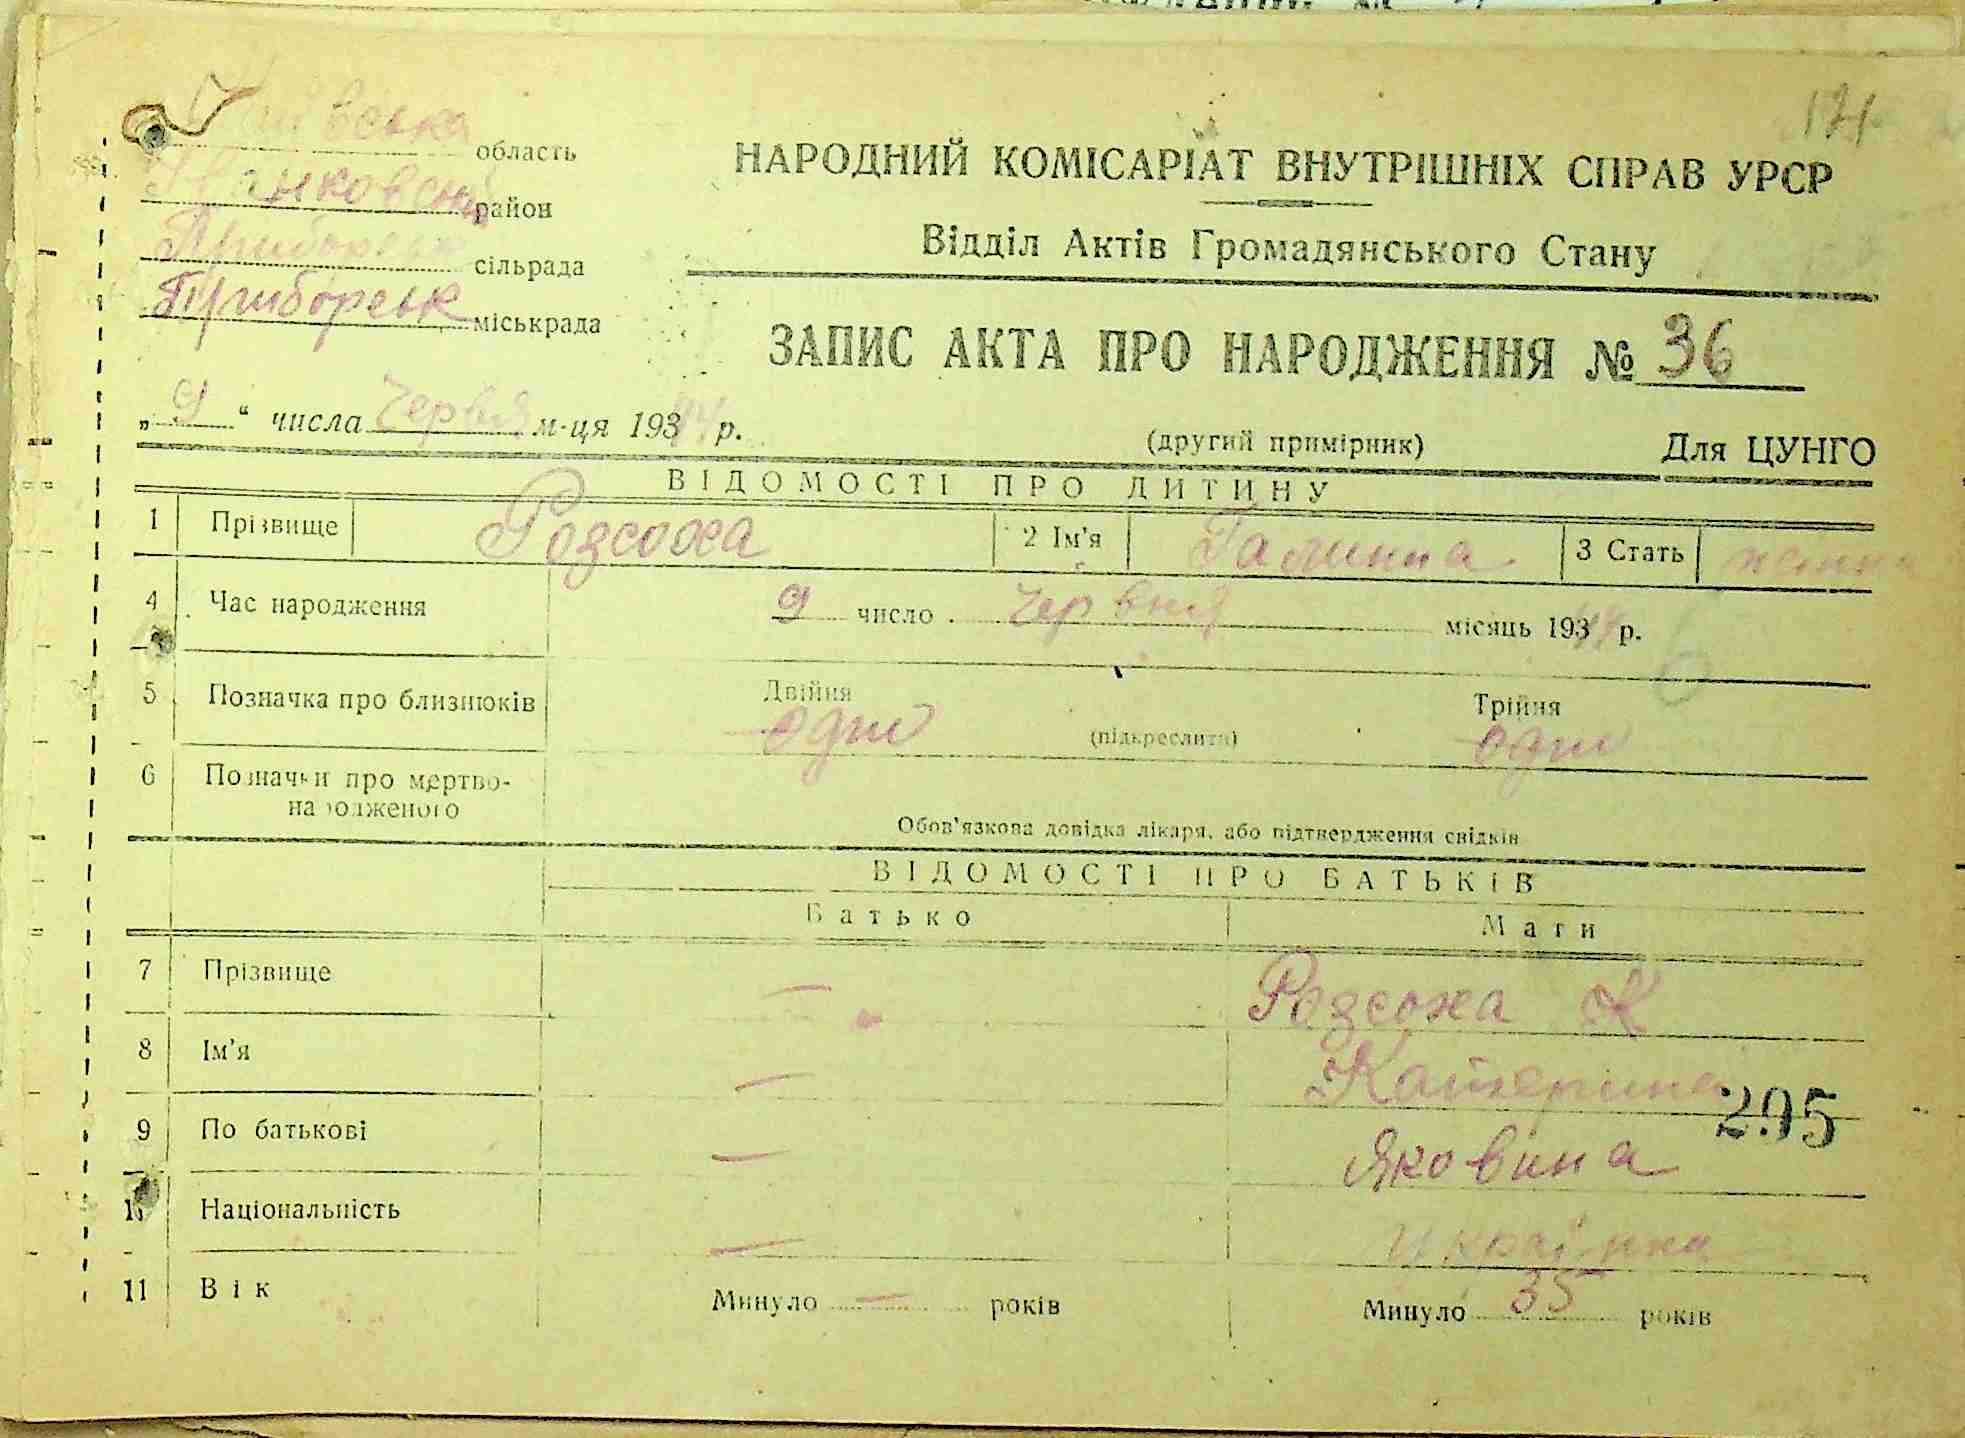 174
Київська область
Іванковський район
Приборськ сільрада
Приборськ міськрада
НАРОДНИЙ КОМІСАРІАТ ВНУТРІШНІХ СПРАВ УРСР
Відділ Актів Громадянського Стану
ЗАПИС АКТА ПРО НАРОДЖЕННЯ № 36
„ 9 “ числа Червня м-ця 193 44 р.
(другий примірник) Для ЦУНГО
ВІДОМОСТІ ПРО ДИТИНУ
1 Прізвище Розсоха 2 Ім'я Галинна 3 Стать жінка
4 Час народження 9 число Червня місяць 193 44 р.
5 Позначка про близнюків Двійня Трійня
одно (підкреслити) одно
6 Позначки про мертво-
народженого
Обов'язкова довідка лікаря, або підтвердження свідків
ВІДОМОСТІ ПРО БАТЬКІВ
Батько Мати
7 Прізвище — Розсоха К
8 Ім'я — Катерина
295
9 По батькові — Яковина
10 Національність — Українка
11 Вік Минуло — років Минуло 35 років